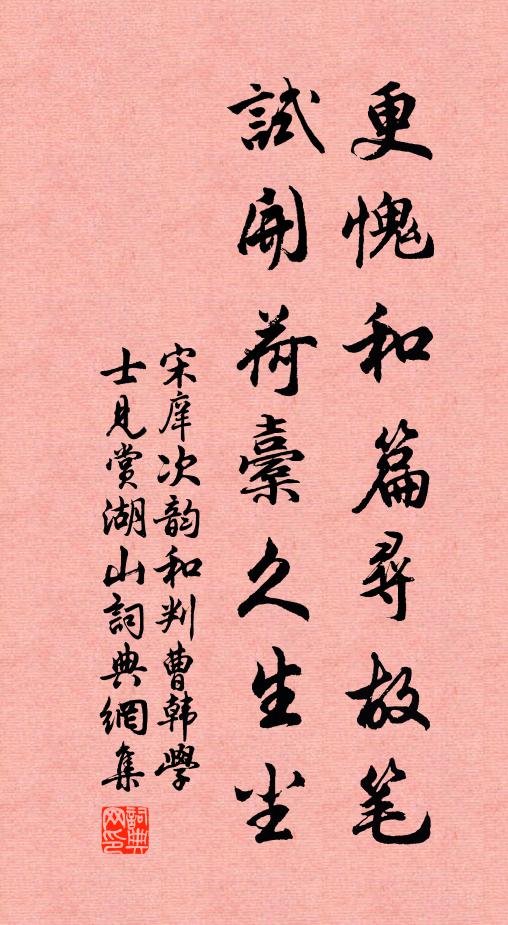 更愧和篇尋故笔
試開荷橐久生尘
宋庠次韵和判曹韩學
士見赏湖山詞典網集
詞典
网印